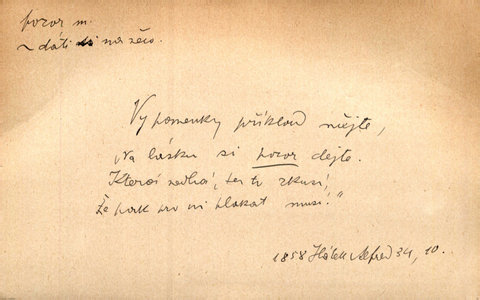 pozor m.
~ dáti si na něco.
Vy pomenky příklad mějte,
„Na lásku si pozor dejte.
Která nedbá, ten to zkusí,
Že pak pro ni plakat musí!"
1858 Hálek Alfred 34, 10.